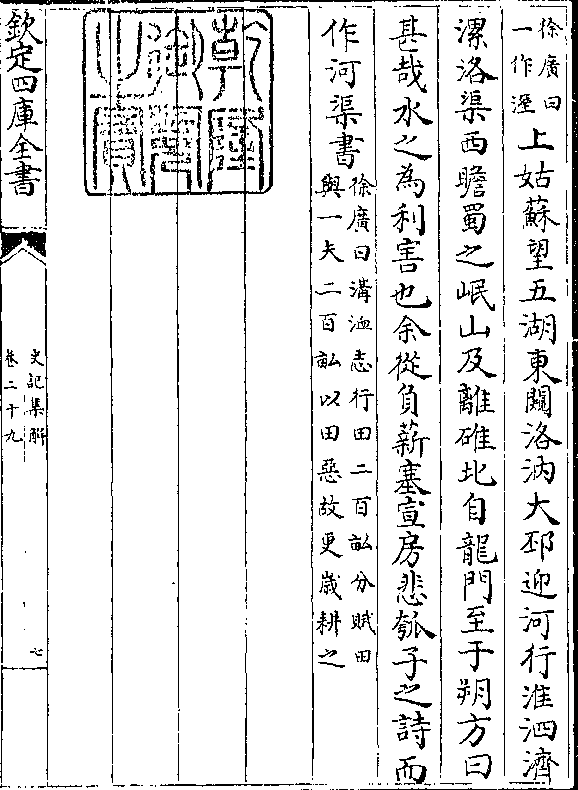 徐廣曰
一作溼
上姑蘇望五湖東闚洛汭大邳迎河行淮泗濟
漯洛渠西瞻蜀之岷山及離碓北自龍門至于朔方曰
甚哉水之為利害也余從負薪塞宣房悲瓠子之詩而
作河渠書
徐廣曰溝洫志行田二百畆分賦田
與一夫二百畆以田惡故更歲耕之
乾隆
御覽
之寶
欽定四庫全書
史記集解
卷二十九
七